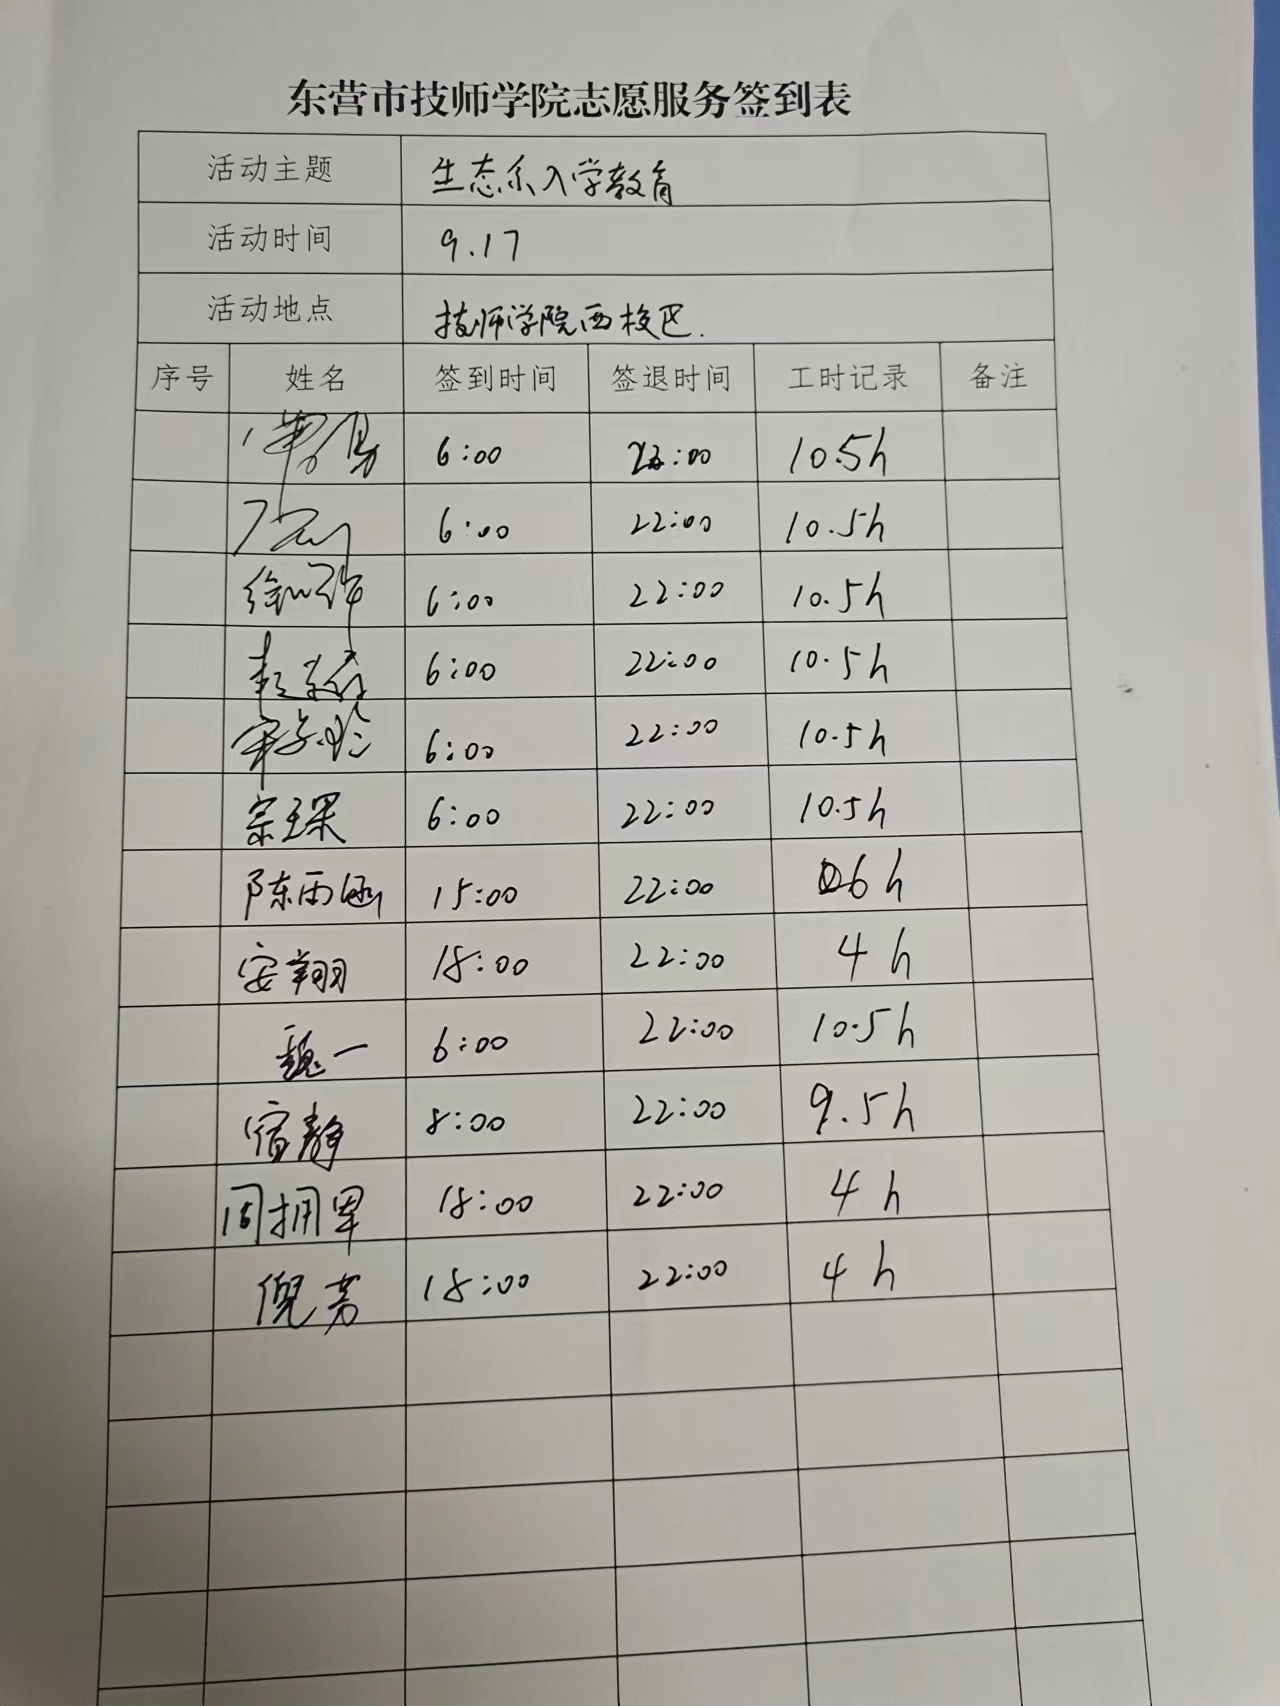 东营市技师学院志愿服务签到表
活动主题 生态系入学教育
活动时间 9.17
活动地点 技师学院西校区.
序号 姓名 签到时间 签退时间 工时记录 备注
6:00 22:00 10.5h
6:00 22:00 10.5h
6:00 22:00 10.5h
6:00 22:00 10.5h
6:00 22:00 10.5h
6:00 22:00 10.5h
陈雨涵 15:00 22:00 6h
安翔 18:00 22:00 4h
魏一 6:00 22:00 10.5h
宿静 8:00 22:00 9.5h
周拥军 18:00 22:00 4h
倪芳 18:00 22:00 4h